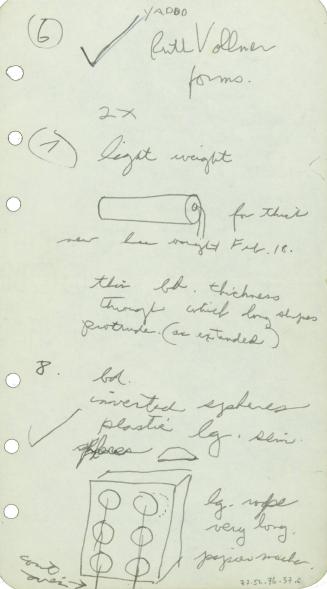 YADDO
6
Ruth Vollmer
forms.
2X
7
light weight
for this
new hose bought Feb. 18.
thin bd. thickness
through which long shapes
protrude. (as extended)
8.
bd.
inverted spheres
plastic lg. sem.
lg. rope
very long.
papier mache.
cont
over →
77.52.76.37.6